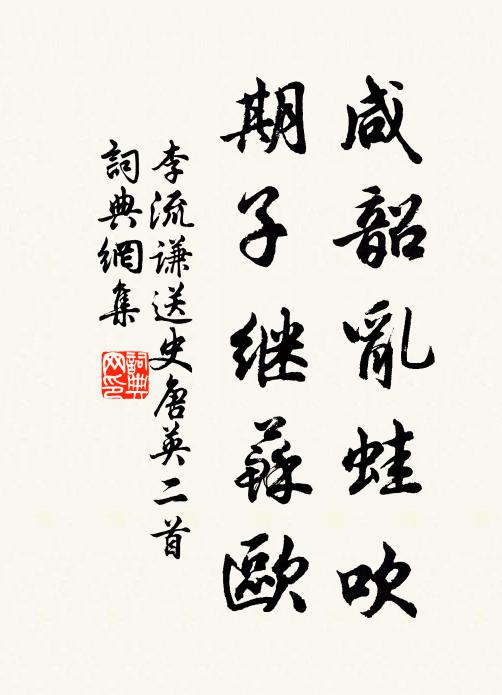 咸韶亂蛙吹
期子継蘇歐
李流謙送史唐英二首
詞典網集
詞典網印